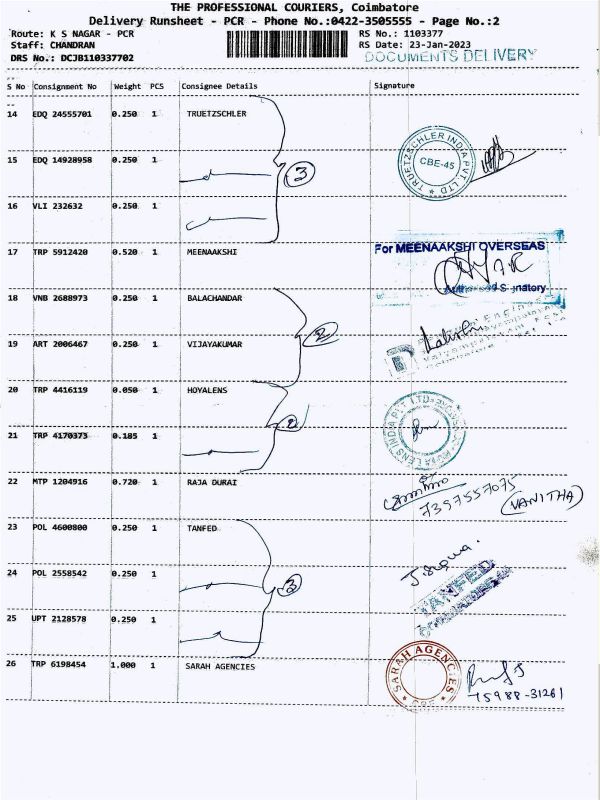 THE PROFESSIONAL COURIERS, Coimbatore
Delivery Runsheet - PCR - Phone No.:0422-3505555 - Page No.:2
Route: K S NAGAR - PCR RS No.: 1103377
Staff: CHANDRAN RS Date: 23-Jan-2023
DRS No.: DCJB110337702 DOCUMENTS DELIVERY
S No Consignment No Weight PCS Consignee Details Signature
14 EDQ 24555701 0.250 1 TRUETZSCHLER
TRUETZSCHLER INDIA PVT. LTD
CBE-45
15 EDQ 14928958 0.250 1 3
16 VLI 232632 0.250 1
17 TRP 5912420 0.520 1 MEENAAKSHI
For MEENAAKSHI OVERSEAS
Authorised Signatory
18 VNB 2688973 0.250 1 BALACHANDAR
2
19 ART 2006467 0.250 1 VIJAYAKUMAR
20 TRP 4416119 0.050 1 HOYALENS
2
21 TRP 4170373 0.185 1
HOYA LENS INDIA PVT LTD
22 MTP 1204916 0.720 1 RAJA DURAI
7397557075
(VANITHA)
23 POL 4600800 0.250 1 TANFED
24 POL 2558542 0.250 1 3
TANFED
25 UPT 2128578 0.250 1
26 TRP 6198454 1.000 1 SARAH AGENCIES
SARAH AGENCIES
CBE
75988-31261